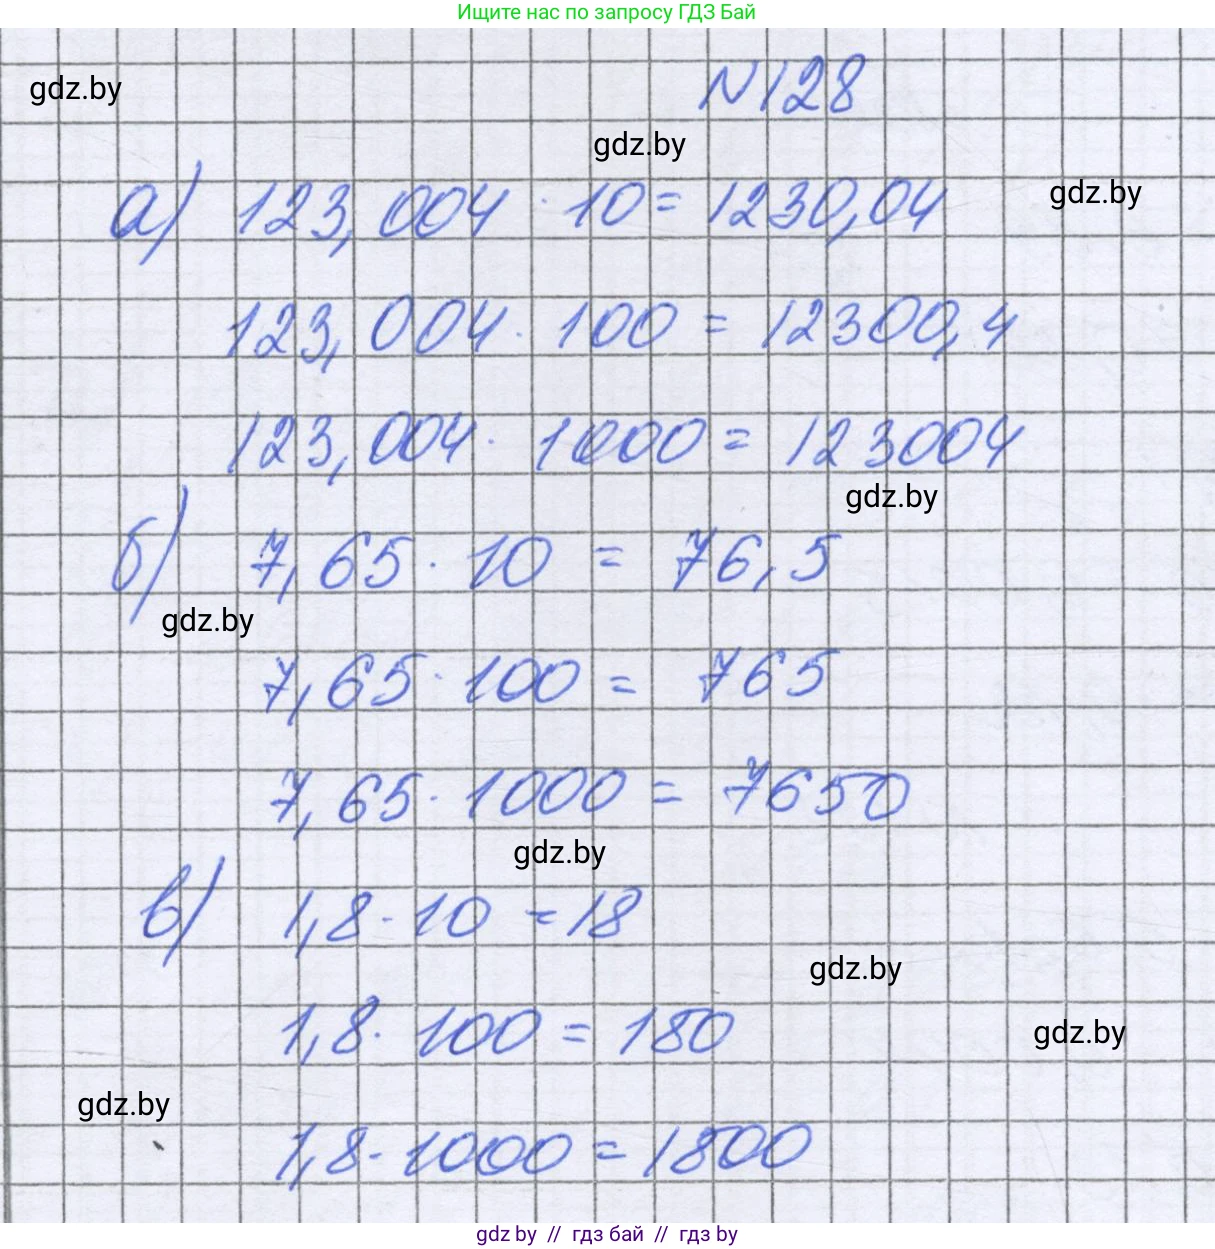 Ищите нас по запросу ГДЗ Бай
gdz.by
N128
gdz.by
а) 123,004 · 10 = 1230,04
gdz.by
123,004 · 100 = 12300,4
123,004 · 1000 = 123004
gdz.by
б) 7,65 · 10 = 76,5
gdz.by
7,65 · 100 = 765
7,65 · 1000 = 7650
gdz.by
в) 1,8 · 10 = 18
gdz.by
1,8 · 100 = 180
gdz.by
gdz.by
1,8 · 1000 = 1800
gdz by // гдз бай // гдз by